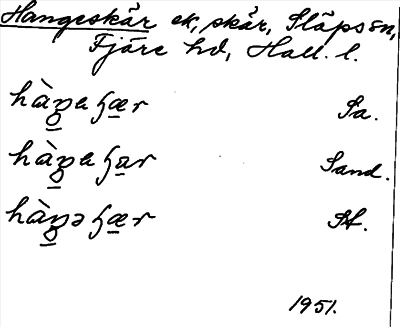 Hangeskär ek, skär, Släps sn,
Fjäre hd, Hall. l.
hàŋaʃær Sa.
hàŋaʃar Sand.
hàŋəʃær St.
1951.